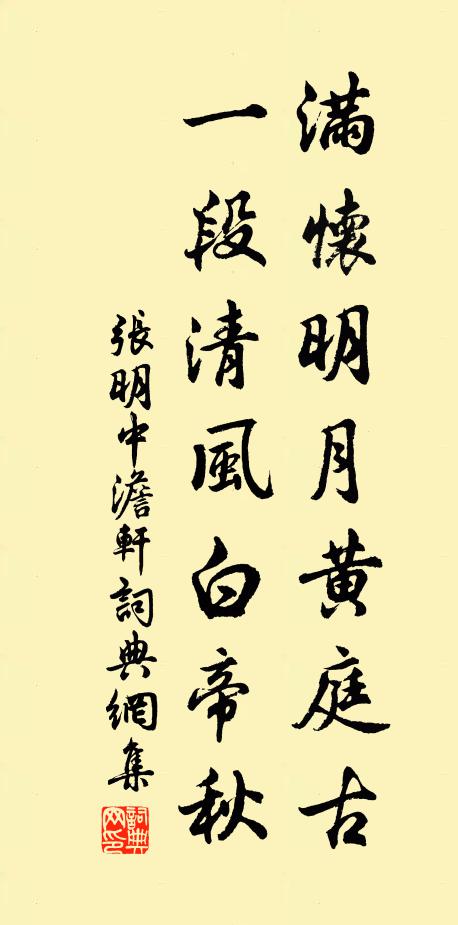 滿懷明月黃庭古
一段清風白帝秋
張明中澹軒詞典網集
詞典網印